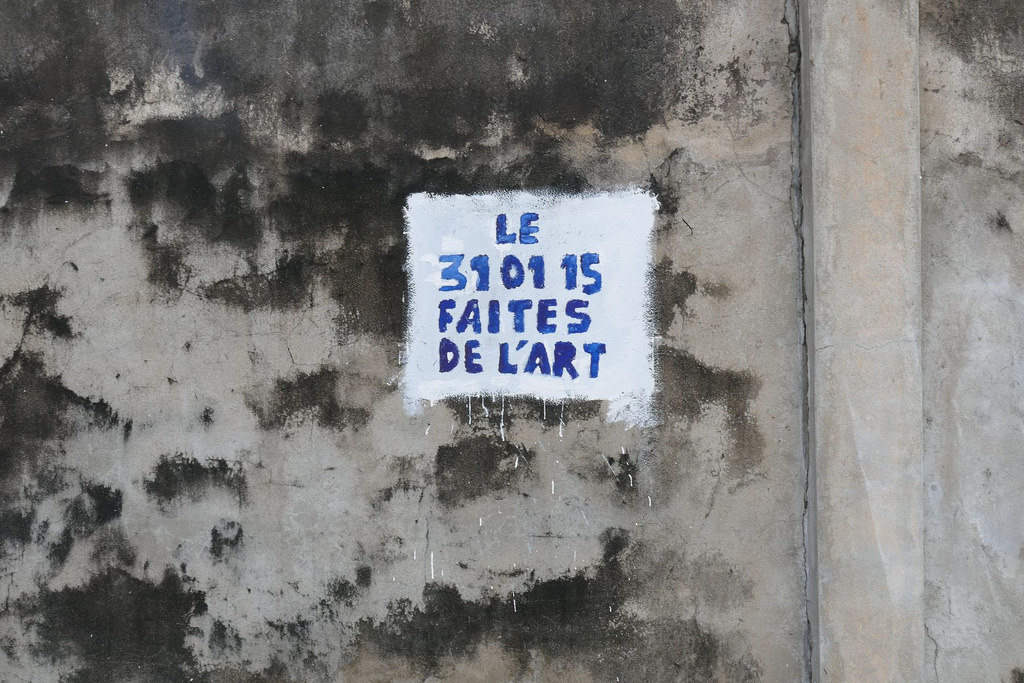 LE
31 01 15
FAITES
DE L'ART